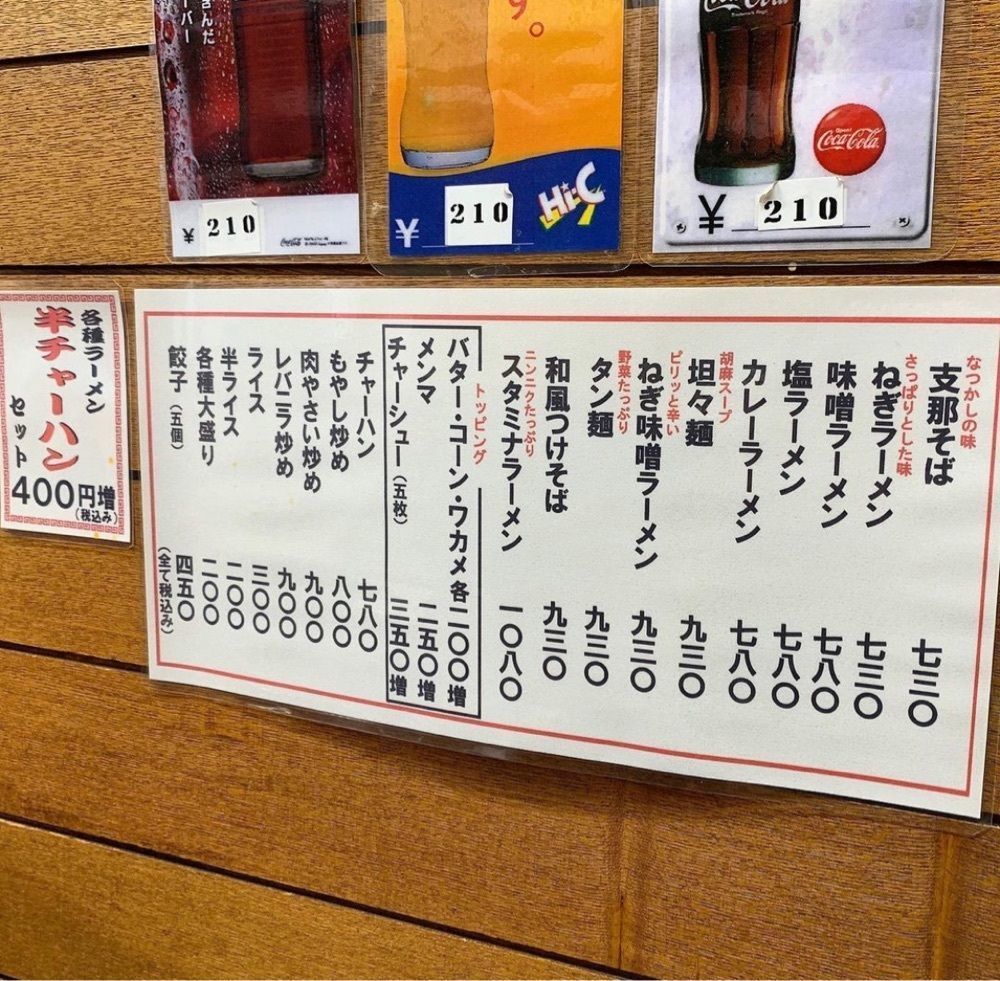 さんだ
バー
¥ 210
9。
Hi-C
¥ 210
Coca-Cola
Coca-Cola
¥ 210
各種ラーメン
半チャーハン
セット
400円増
(税込み)
なつかしの味
支那そば 七三〇
さっぱりとした味
ねぎラーメン 七三〇
味噌ラーメン 七八〇
塩ラーメン 七八〇
カレーラーメン 七八〇
胡麻スープ
坦々麺 九三〇
ピリッと辛い
ねぎ味噌ラーメン 九三〇
野菜たっぷり
タン麺 九三〇
和風つけそば 九三〇
ニンニクたっぷり
スタミナラーメン 一〇八〇
トッピング
バター・コーン・ワカメ各二〇〇増
メンマ 二五〇増
チャーシュー(五枚) 三五〇増
チャーハン 七八〇
もやし炒め 八〇〇
肉やさい炒め 九〇〇
レバニラ炒め 九〇〇
ライス 三〇〇
半ライス 二〇〇
各種大盛り 二〇〇
餃子(五個) 四五〇
(全て税込み)